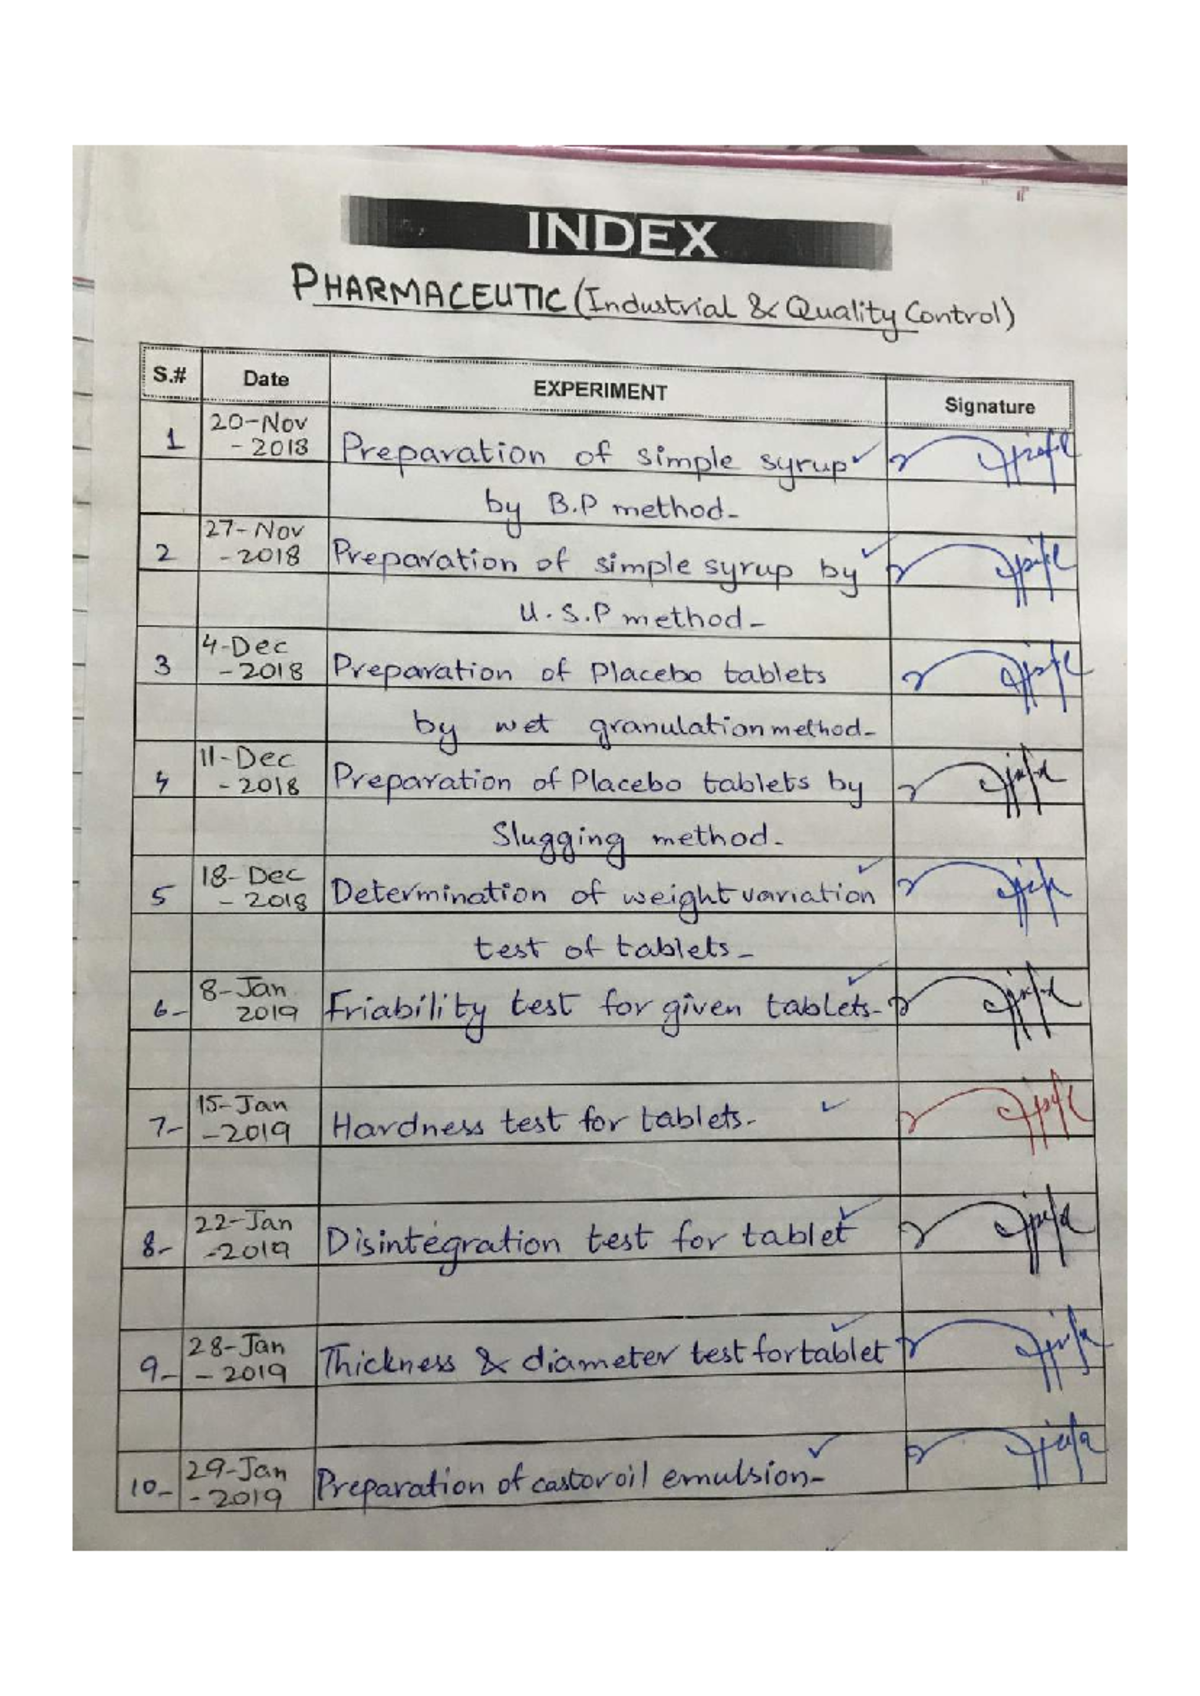 INDEX
PHARMACEUTIC (Industrial & Quality Control)
S.# Date EXPERIMENT Signature
20-Nov
1 -2018 Preparation of simple syrup
by B.P method-
27-Nov
2 -2018 Preparation of simple syrup by
U.S.P method-
4-Dec
3 -2018 Preparation of Placebo tablets
by wet granulation method-
11-Dec
4 -2018 Preparation of Placebo tablets by
Slugging method-
18-Dec
5 -2018 Determination of weight variation
test of tablets-
8-Jan
6- 2019 Friability test for given tablets-
15-Jan
7- -2019 Hardness test for tablets-
22-Jan
8- -2019 Disintegration test for tablet
28-Jan
9- -2019 Thickness & diameter test for tablet
29-Jan
10- -2019 Preparation of castor oil emulsion-